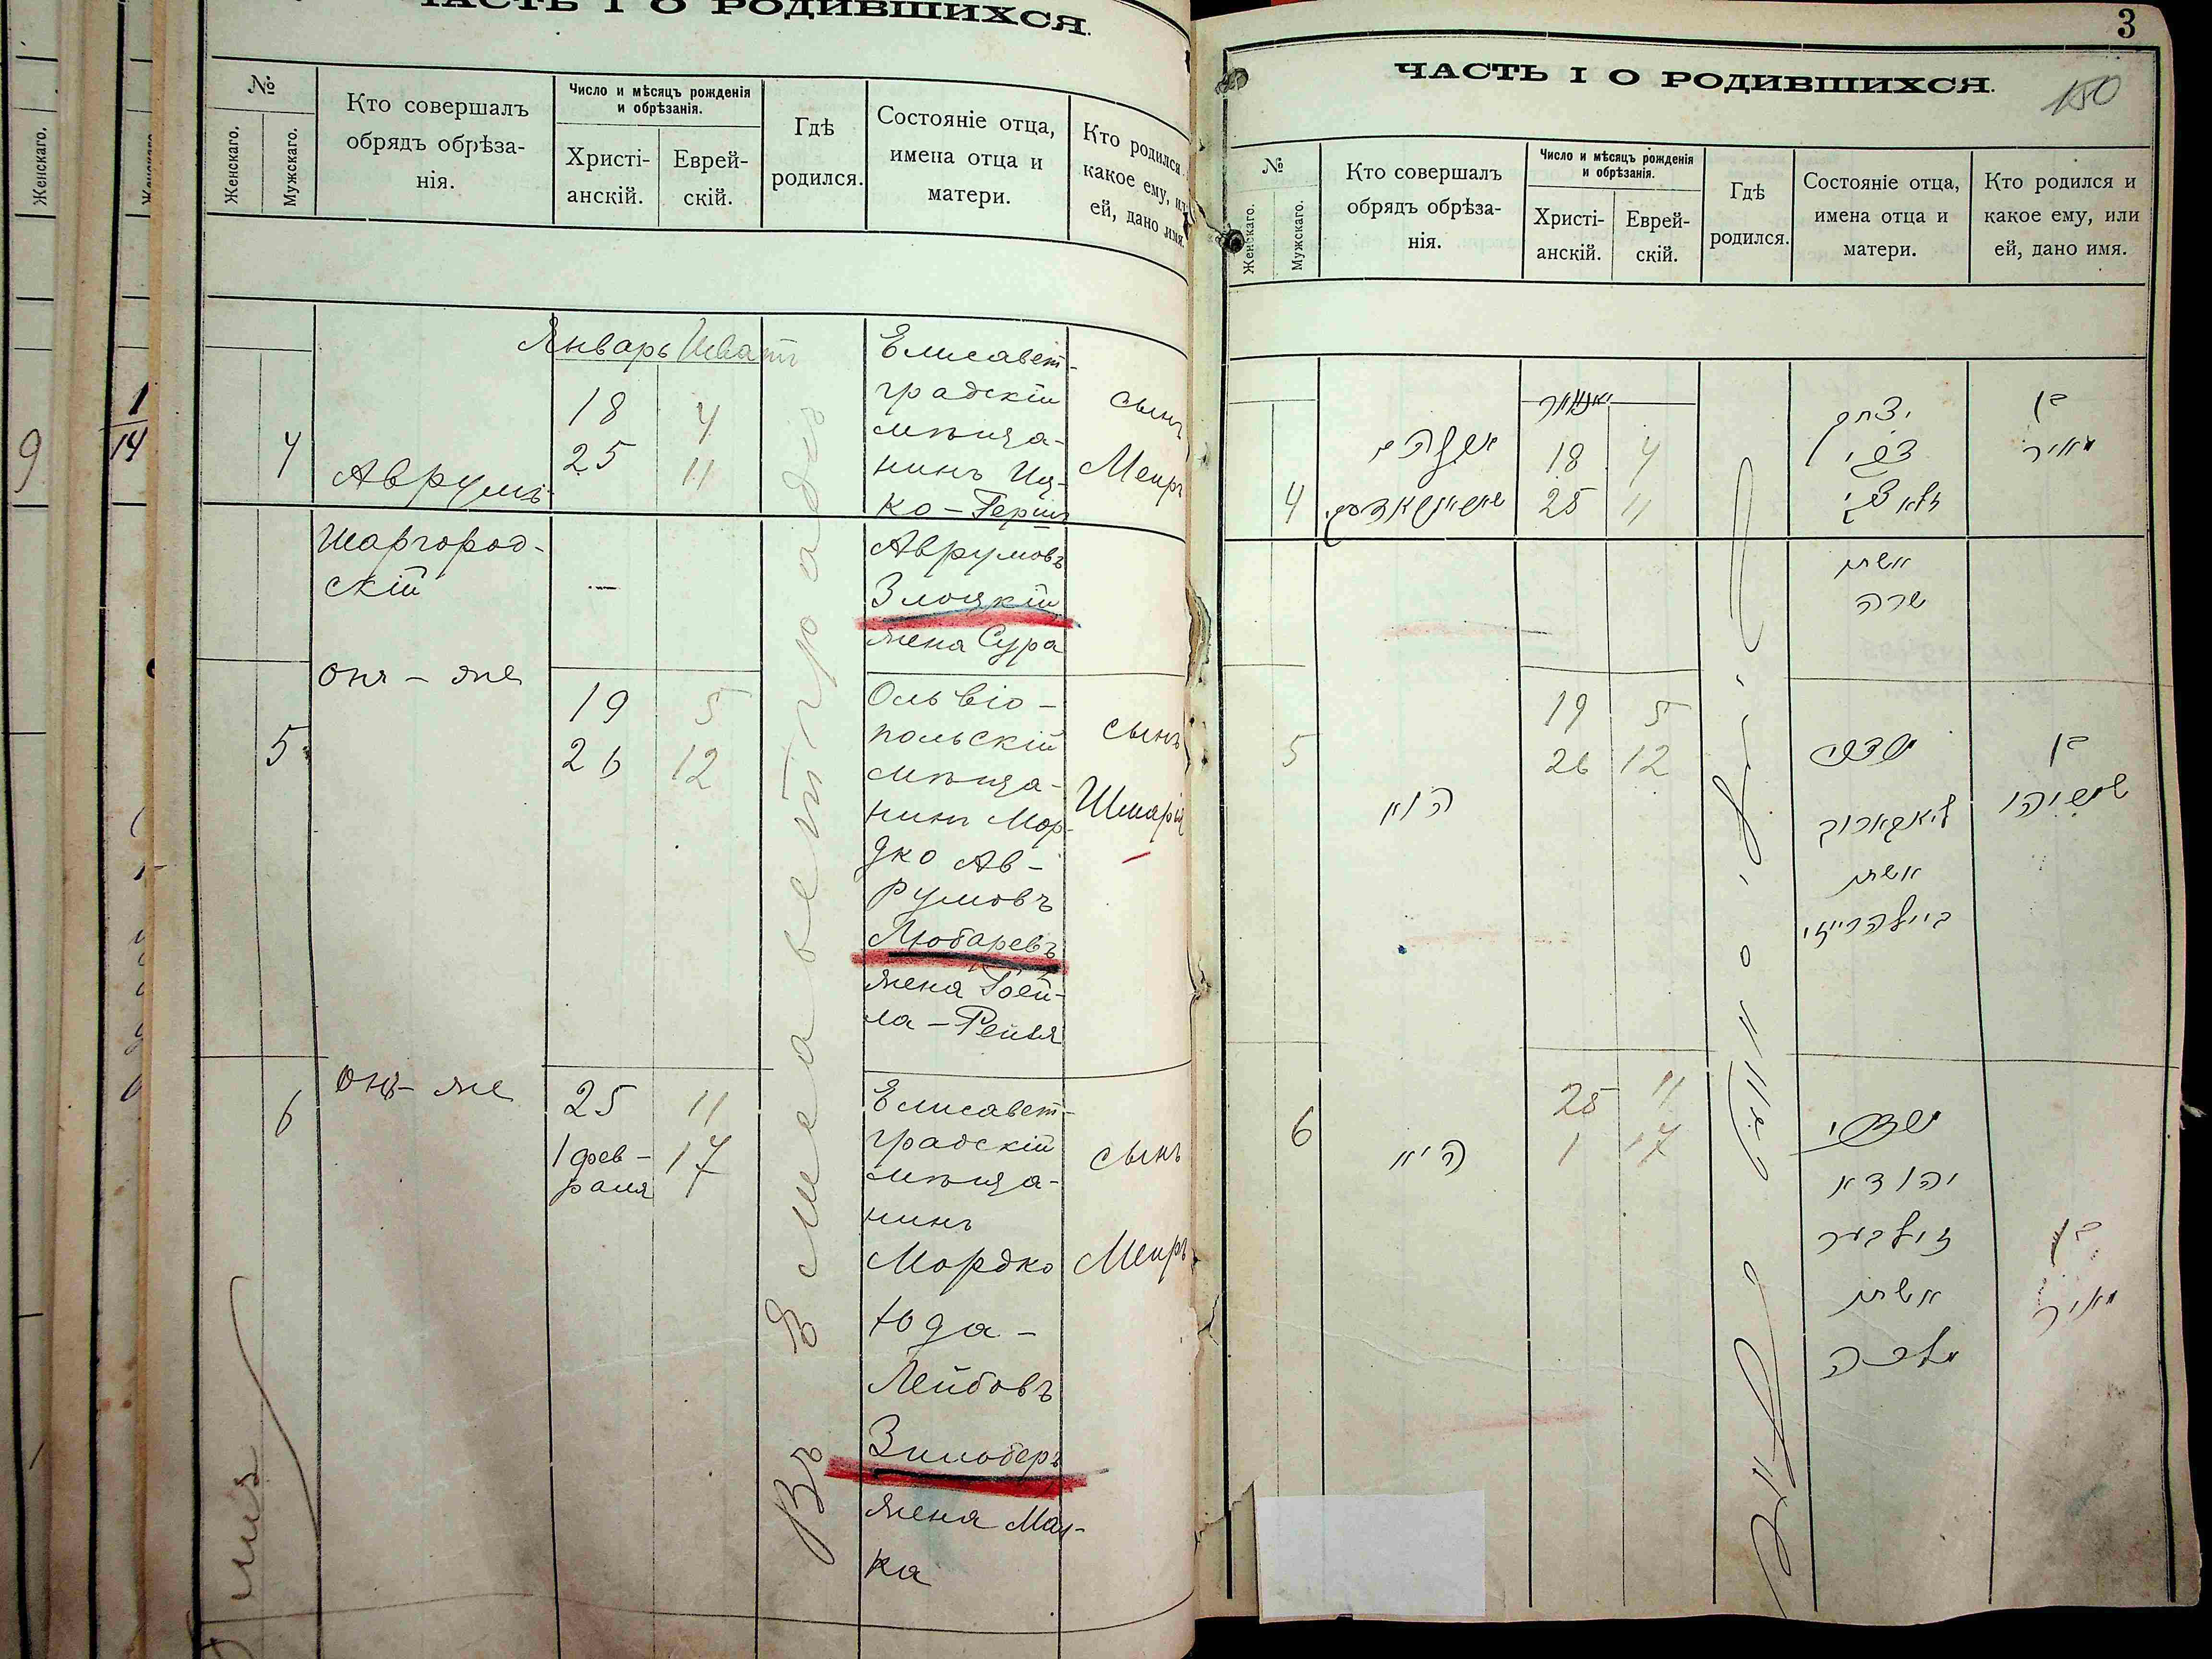 ЧАСТЬ I О РОДИВШИХСЯ.
№
Женскаго.
Мужскаго.
Кто совершалъ
обрядъ обрѣза-
нія.
Число и мѣсяцъ рожденія
и обрѣзанія.
Христі-
анскій.
Еврей-
скій.
Гдѣ
родился.
Состояніе отца,
имена отца и
матери.
Кто родился
какое ему, ил
ей, дано имя.
Январь Шватъ
4
Аврумъ
Шаргород-
скій
18 4
25 11
Въ Елисаветградѣ
Елисавет-
градскій
мѣща-
нинъ Иц-
ко-Гершъ
Аврумовъ
Злоцкій
жена Сура
сынъ
Меиръ
5
онъ-же
19 5
26 12
Ольвіо-
польскій
мѣща-
нинъ Мор-
дко Ав-
румовъ
Любаревъ
жена Бей-
ла-Рейзя
сынъ
Шмарія
6
онъ-же
25 11
1 фев- 17
раля
Елисавет-
градскій
мѣща-
нинъ
Мордко
Юда-
Лейбовъ
Зильберъ
жена Мал-
ка
сынъ
Меиръ
3
150
ЧАСТЬ I О РОДИВШИХСЯ.
№
Женскаго.
Мужскаго.
Кто совершалъ
обрядъ обрѣза-
нія.
Число и мѣсяцъ рожденія
и обрѣзанія.
Христі-
анскій.
Еврей-
скій.
Гдѣ
родился.
Состояніе отца,
имена отца и
матери.
Кто родился и
какое ему, или
ей, дано имя.
4
18 4
25 11
יצחק
צבי
אשתו
שרה
בן
מאיר
5
הוא
19 5
26 12
מרדכי
אשתו
ביילה רייזי
בן
שמריהו
6
היא
25 11
1 17
מרדכי
יהודא
זילבער
אשתו
מלכה
בן
מאיר